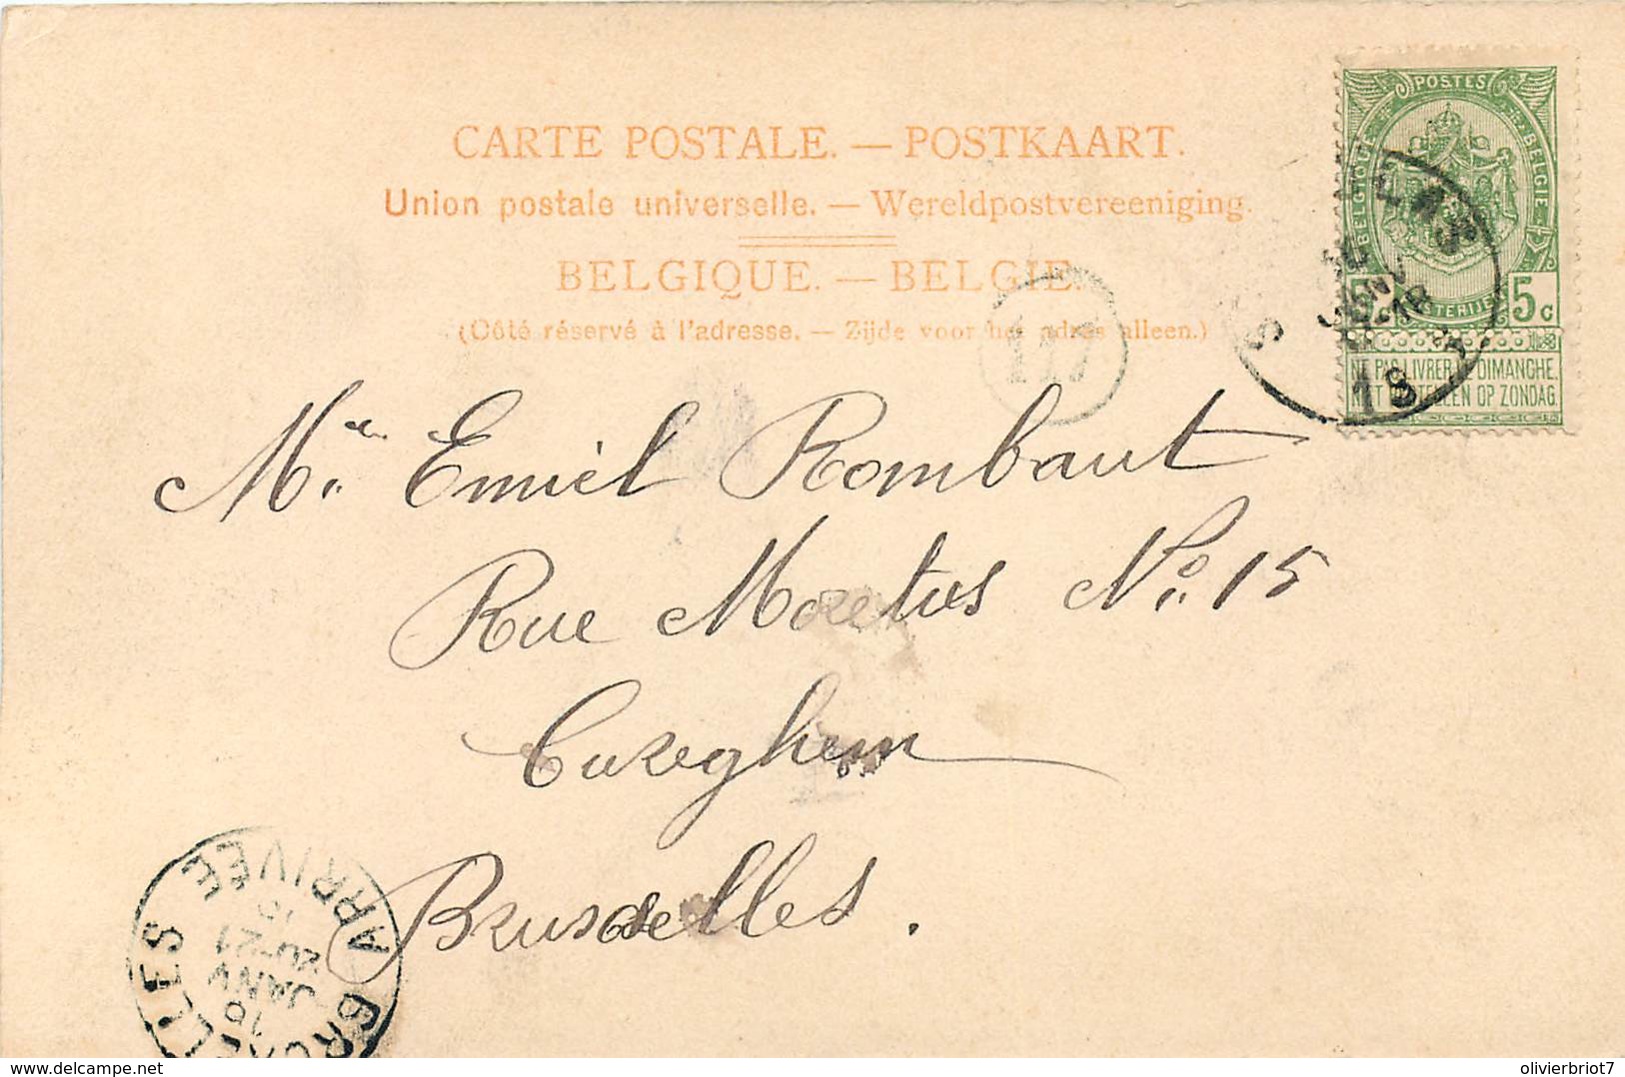 CARTE POSTALE. — POSTKAART.
Union postale universelle. — Wereldpostvereeniging.
BELGIQUE. — BELGIE.
(Côté réservé à l'adresse. — Zijde voor het adres alleen.)
POSTES
BELGIQUE
BELGIE
5c
NE PAS LIVRER LE DIMANCHE.
NIET BESTELLEN OP ZONDAG.
JANV
18
Mr. Emiel Rombaut
Rue Moretus No. 15
Cureghem
Bruxelles.
BRUXELLES ARRIVÉE
10
JANV
20-21
delcampe.net
olivierbriot7